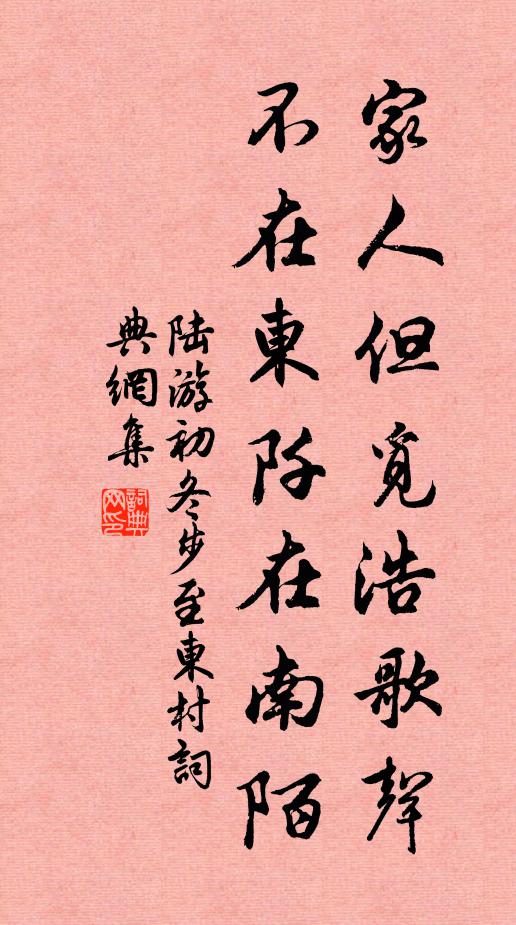 家人但覓浩歌聲
不在東阡在南陌
陆游初冬步至東村詞
典網集
詞典网印